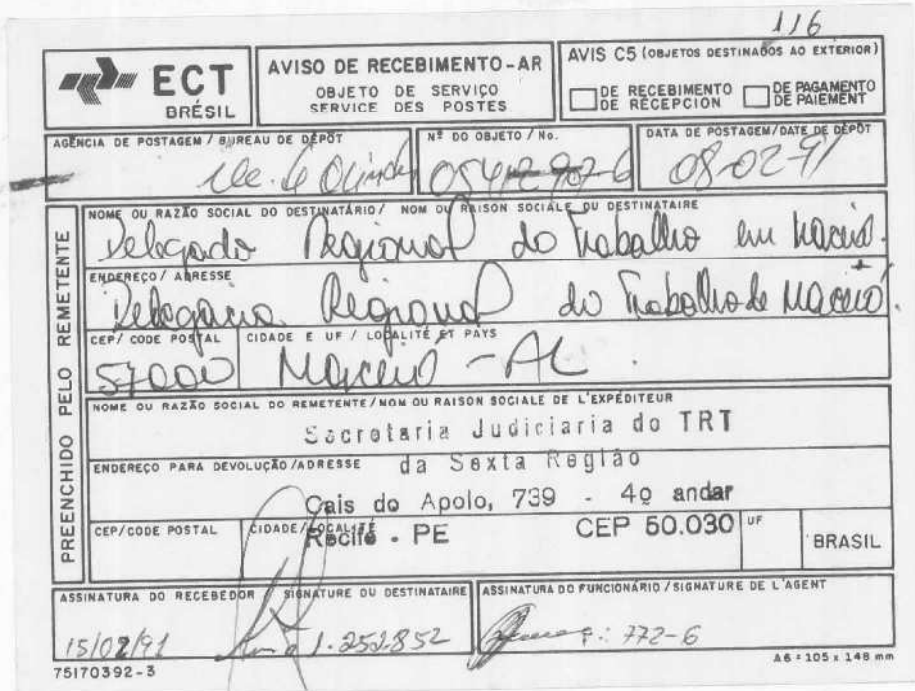 116
ECT
BRÉSIL
AVISO DE RECEBIMENTO-AR
OBJETO DE SERVIÇO
SERVICE DES POSTES
AVIS C5 (OBJETOS DESTINADOS AO EXTERIOR)
DE RECEBIMENTO
DE RÉCEPCION
DE PAGAMENTO
DE PAIEMENT
AGÊNCIA DE POSTAGEM / BUREAU DE DÉPÔT
Nº DO OBJETO / No.
DATA DE POSTAGEM/DATE DE DÉPÔT
08-02-91
PREENCHIDO PELO REMETENTE
NOME OU RAZÃO SOCIAL DO DESTINATÁRIO / NOM OU RAISON SOCIALE DU DESTINATAIRE
Delegado Regional do Trabalho em
ENDEREÇO / ADRESSE
Delegacia Regional do Trabalho de Maceió.
CEP / CODE POSTAL
CIDADE E UF / LOCALITÉ ET PAYS
57000
Maceió - AL.
NOME OU RAZÃO SOCIAL DO REMETENTE / NOM OU RAISON SOCIALE DE L'EXPÉDITEUR
Secretaria Judiciaria do TRT
ENDEREÇO PARA DEVOLUÇÃO / ADRESSE
da Sexta Região
Cais do Apolo, 739 - 4º andar
CEP/CODE POSTAL
CIDADE / LOCALITÉ
Recife - PE CEP 50.030
UF
BRASIL
ASSINATURA DO RECEBEDOR / SIGNATURE DU DESTINATAIRE
ASSINATURA DO FUNCIONÁRIO / SIGNATURE DE L'AGENT
15/02/91
1.252.852
772-6
75170392-3
A6 = 105 x 148 mm